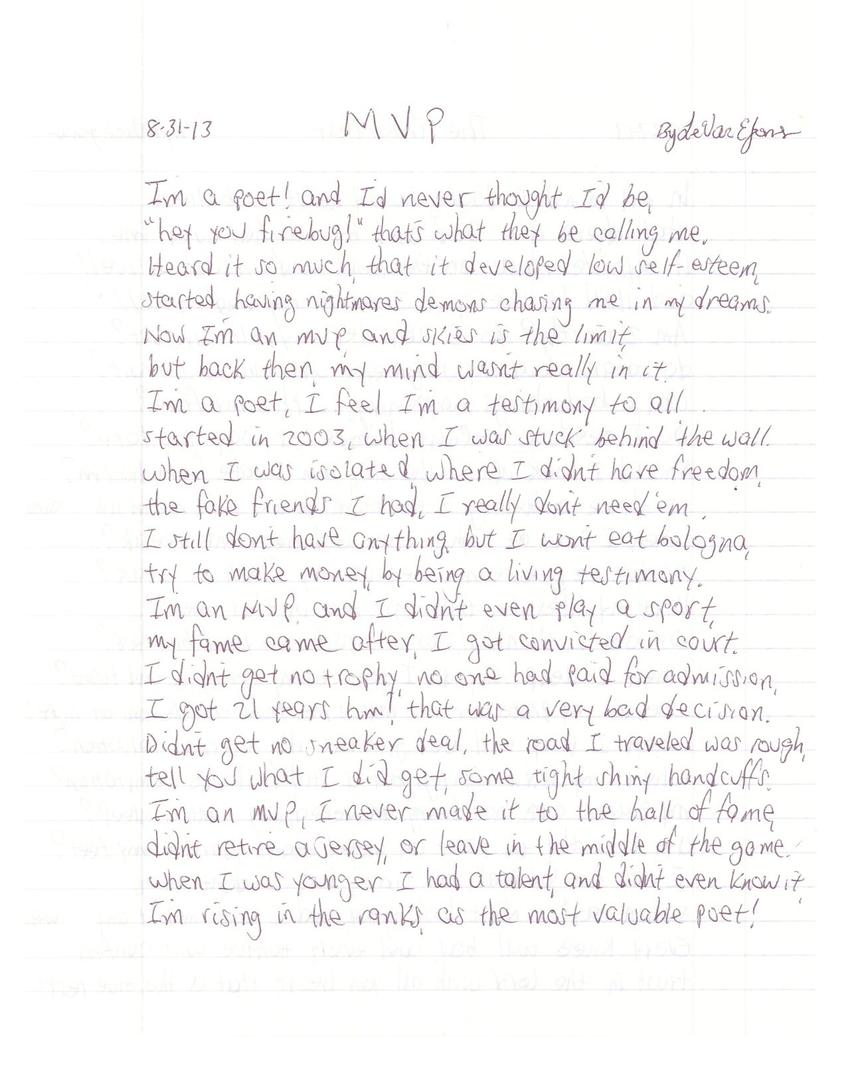 8-31-13 MVP By LeVar Epons
Im a poet! and I'd never thought I'd be,
"hey you firebug!" that's what they be calling me.
Heard it so much, that it developed low self-esteem,
started having nightmares demons chasing me in my dreams.
Now I'm an mvp, and skies is the limit,
but back then, my mind wasn't really in it.
I'm a poet, I feel I'm a testimony to all.
started in 2003, when I was stuck behind the wall.
when I was isolated, where I didn't have freedom,
the fake friends I had, I really don't need 'em.
I still don't have anything, but I won't eat bologna,
try to make money, by being a living testimony.
I'm an MVP, and I didn't even play a sport,
my fame came after, I got convicted in court.
I didn't get no trophy, no one had paid for admission,
I got 21 years hm! that was a very bad decision.
Didn't get no sneaker deal, the road I traveled was rough,
tell you what I did get, some tight shiny handcuffs.
I'm an mvp, I never made it to the hall of fame,
didn't retire a jersey, or leave in the middle of the game.
when I was younger I had a talent, and didn't even know it,
I'm rising in the ranks, as the most valuable poet!